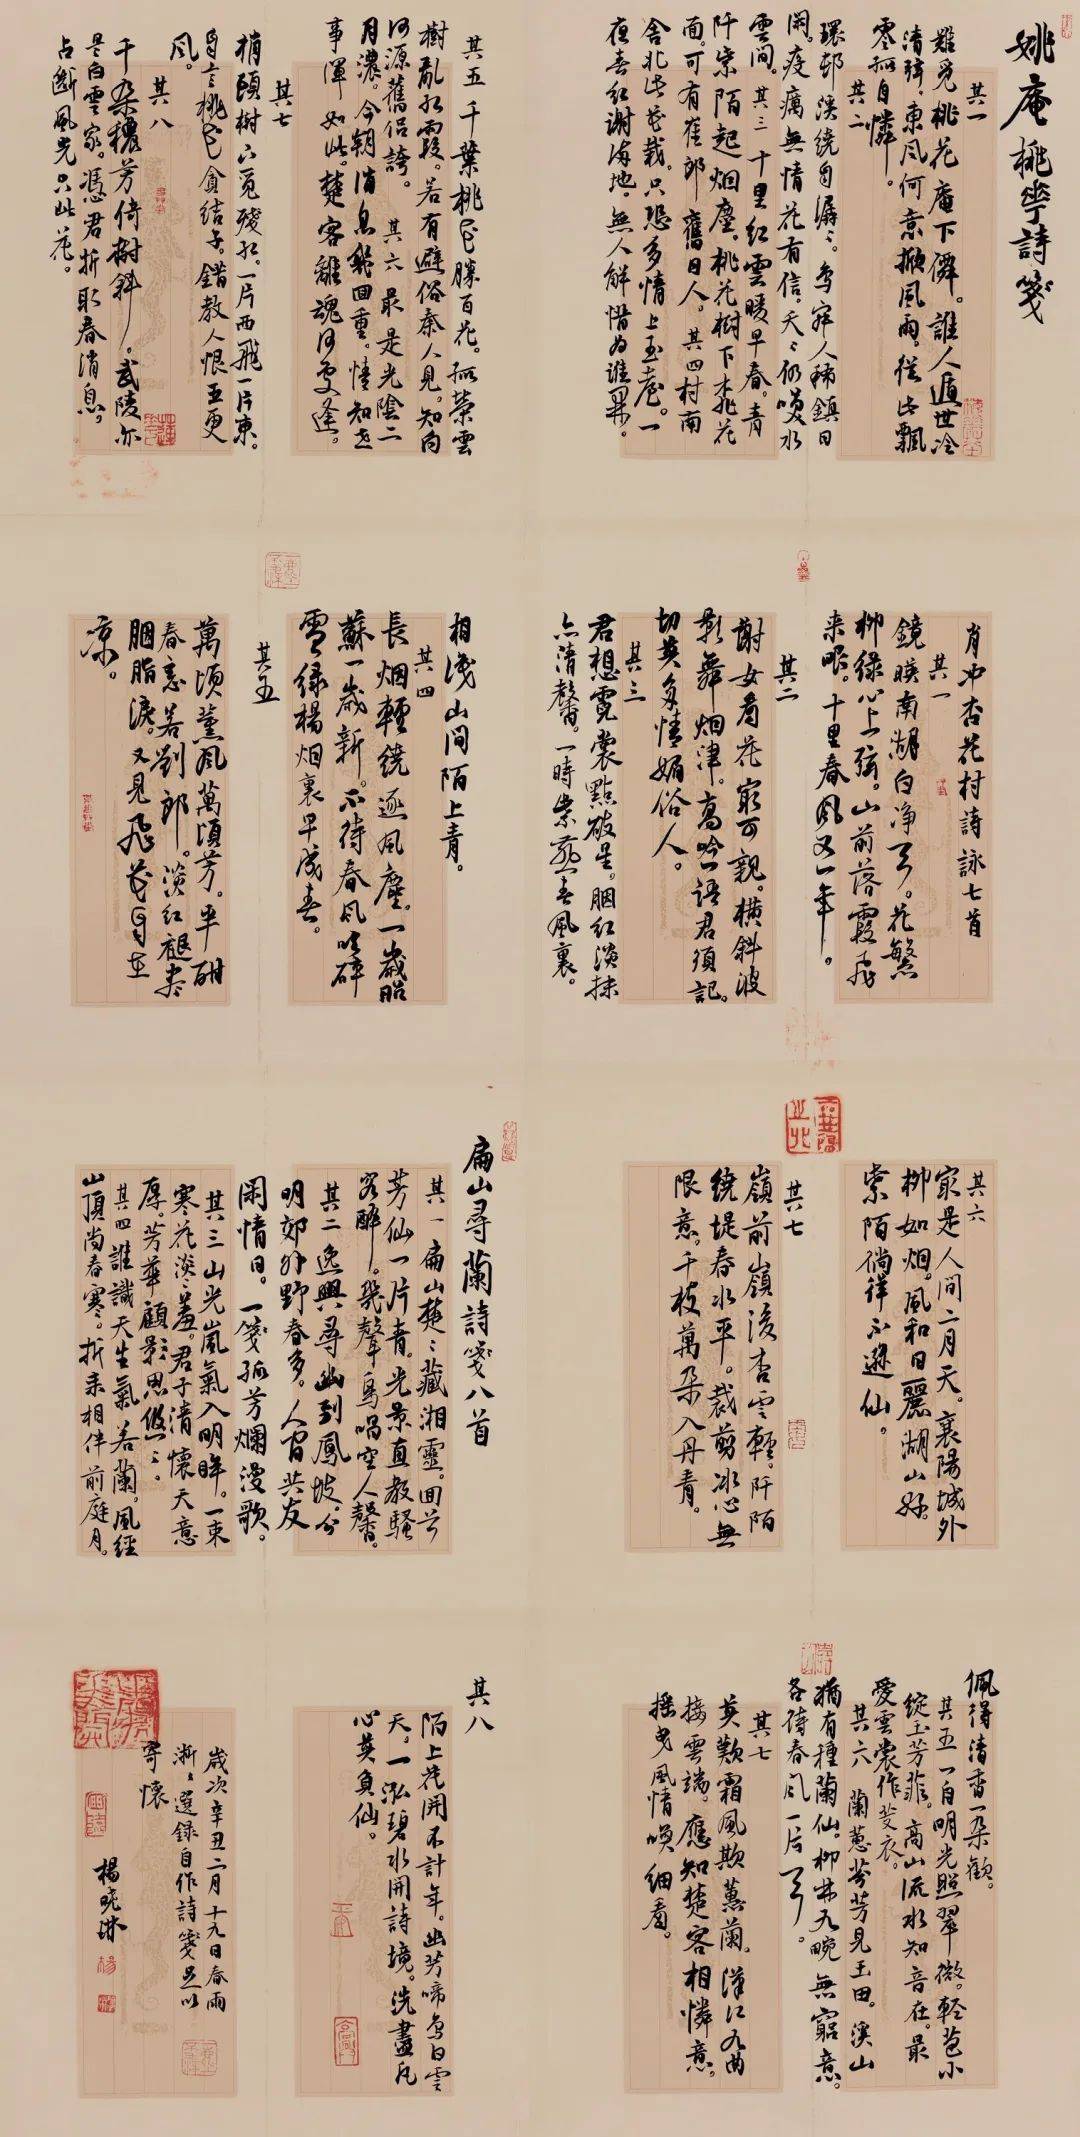 姚庵桃華詩箋
其一
難覓桃花庵下僊。誰人遁世冷
清錡。東風何意掀風雨。從此飄
零孤自憐。
其二
環邨溪繞自潺々。鳥寂人稀鎮日
閑。疫癘無情花有信。夭々仍喚水
雲間。其三 十里紅雲暖早春。青
阡紫陌起烟塵。桃花樹下桃花
面。可有崔郎舊日人。其四 村南
舍北此花栽。只恐多情上玉臺。一
夜春紅謝滿地。無人解惜為誰開。
其五 千葉桃花勝百花。孤榮雲
樹亂紅霞。若有避俗秦人見。知向
河源舊侶誇。 其六 最是光陰二
月濃。今朝消息幾回重。情知世
事渾如此。楚客離魂何處逢。
其七
梢頭樹下覓殘紅。一片西飛一片東。
自言桃花貪結子。錯教人恨五更
風。
其八
千朵穠芳倚樹斜。武陵亦
是白雲家。憑君折取春消息。
占斷風光只此花。
肖冲杏花村詩詠七首
其一
鏡映南湖白净天。花繁
柳綠心上弦。山前落霞飛
来眼。十里春風又一年。
其二
謝女看花寂可親。橫斜波
影舞烟津。高吟一語君須記。
切莫多情媚俗人。
其三
君想霓裳點破星。胭紅淡抹
亦清馨。一時紫燕春風裏。
相淺山间陌上青。
其四
長烟輕繞逐風塵。一歲昭
蘇一歲新。不待春風吹碎
雪。绿楊烟裏早成春。
其五
萬頃薰風萬頃芳。半酣
春意若劉郎。淡紅褪盡
胭脂淚。又見飛花自在
凉。
其六
寂是人間二月天。襄陽城外
柳如烟。風和日麗湖山好。
紫陌徜徉不遜仙。
其七
嶺前嶺後杏雲輕。阡陌
繞堤春水平。裁剪冰心無
限意。千枝萬朶入丹青。
扁山尋蘭詩箋八首
其一 扁山楚々藏湘靈。回首
芳仙一片青。光景直教騷
客醉。幾聲鳥唱空人馨。
其二 逸興尋幽到鳳坡。分
明郊外野春多。人间共友
閑情日。一箋孤芳爛漫歌。
其三 山光嵐氣入明眸。一束
寒花淡々羞。君子清懷天意
厚。芳華顧影思悠々。
其四 誰識天生氣若蘭。風經
山頂尚春寒。折来相伴前庭月。
佩得清香一朶歡。
其五 一自明光照翠微。輕苞小
綻玉芳菲。高山流水知音在。最
愛雲裳作芰衣。
其六 蘭蕙芬芳見玉田。溪山
猶有種蘭仙。柳林九畹無窮意。
各待春風一片天。
其七
莫歎霜風欺蕙蘭。漢江九曲
接雲端。應知楚客相憐意。
摇曳風情喚细看。
其八
陌上花開不計年。幽芳啼鳥白雲
天。一泓碧水開詩境。洗盡凡
心莫負仙。
歲次辛丑二月十九日春雨
淅々選錄自作詩箋是以
寄懷
楊曉琳